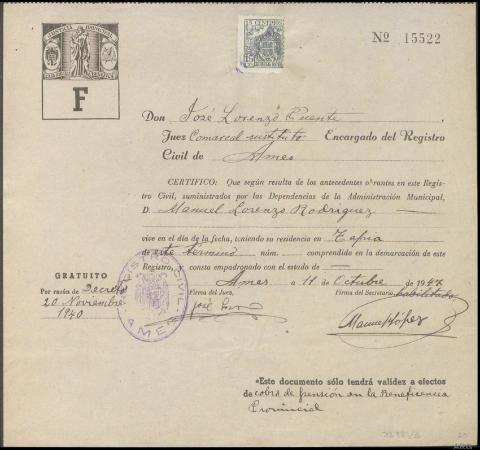 Nº 15522
F
15 CTS
Don José Lorenzo Puente,
Juez Comarcal sustituto Encargado del Registro
Civil de Ames
CERTIFICO: Que según resulta de los antecedentes obrantes en este Regis-
tro Civil, suministrados por las Dependencias de la Administración Municipal,
D. Manuel Lorenzo Rodríguez
vive en el día de la fecha, teniendo su residencia en Tapia
de este término núm. comprendida en la demarcación de este
Registro, consta empadronado con el estado de
Ames a 11 Octubre de 1947
GRATUITO
Por razón de Decreto
20 Noviembre
1940
REGISTRO CIVIL
AMES
Firma del Juez,
José
Firma del Secretario habilitado
Manuel López
*Este documento sólo tendrá validez a efectos
de cobro de pensión en la Beneficencia
Provincial